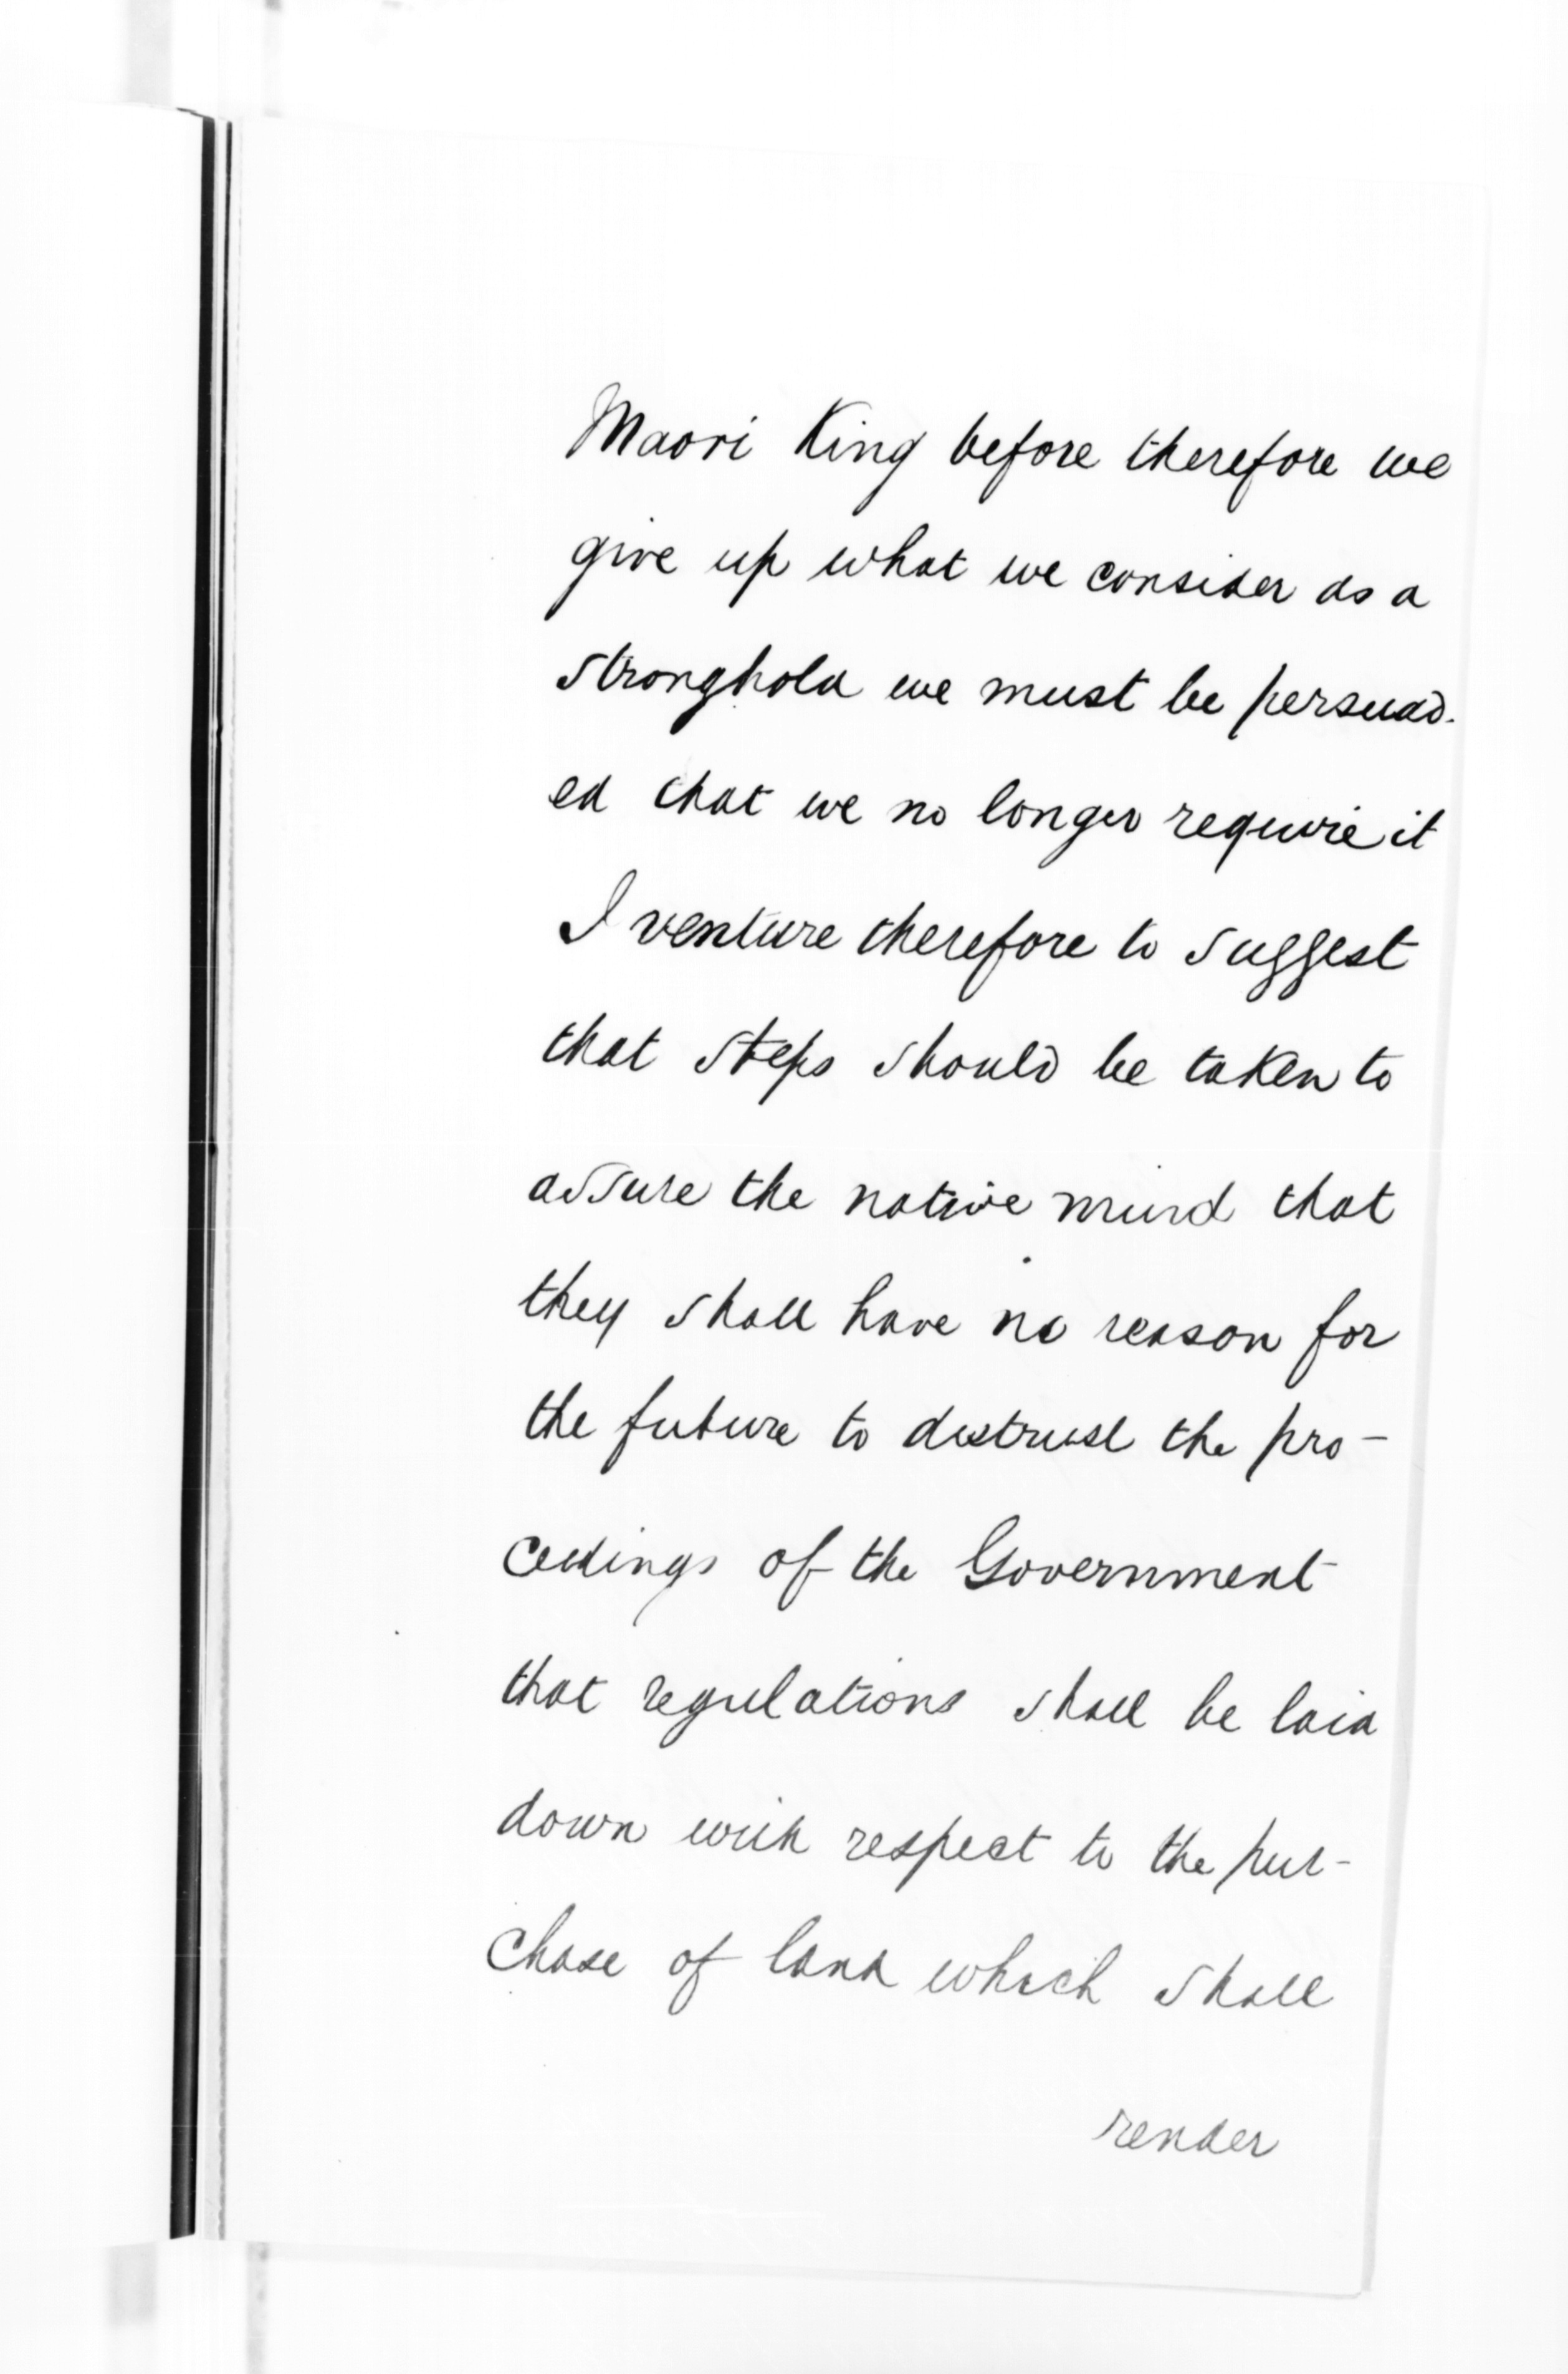 Maori King before therefore we
give up what we consider as a
stronghold we must be persuad-
ed that we no longer require it
I venture therefore to suggest
that steps should be taken to
assure the native mind that
they shall have no reason for
the future to distrust the pro-
ceedings of the Government
that regulations shall be laid
down with respect to the pur-
chase of land which shall
render